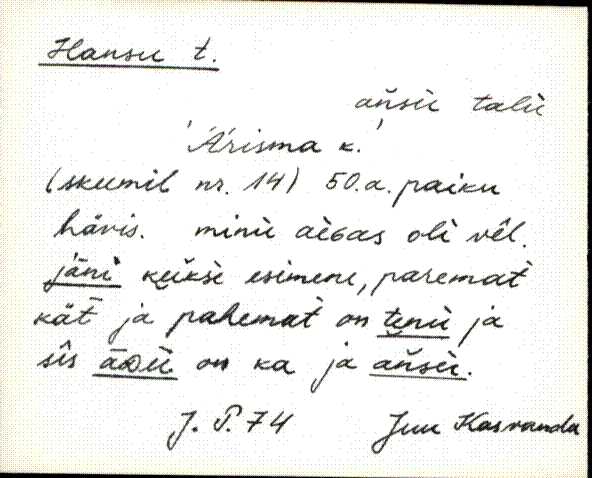 Hansu t.
añsu̬ talu̬
'Ärisma k.'
(skeemil nr. 14) 50.a. paiku
hävis. minu̬ aeɢas oli vêl.
jāni keükse esimene, paremat
kät ja pahemat on tenu̬ ja
sîs on ka ja añsu̬.
J. P. 74 Juu Kasvanda